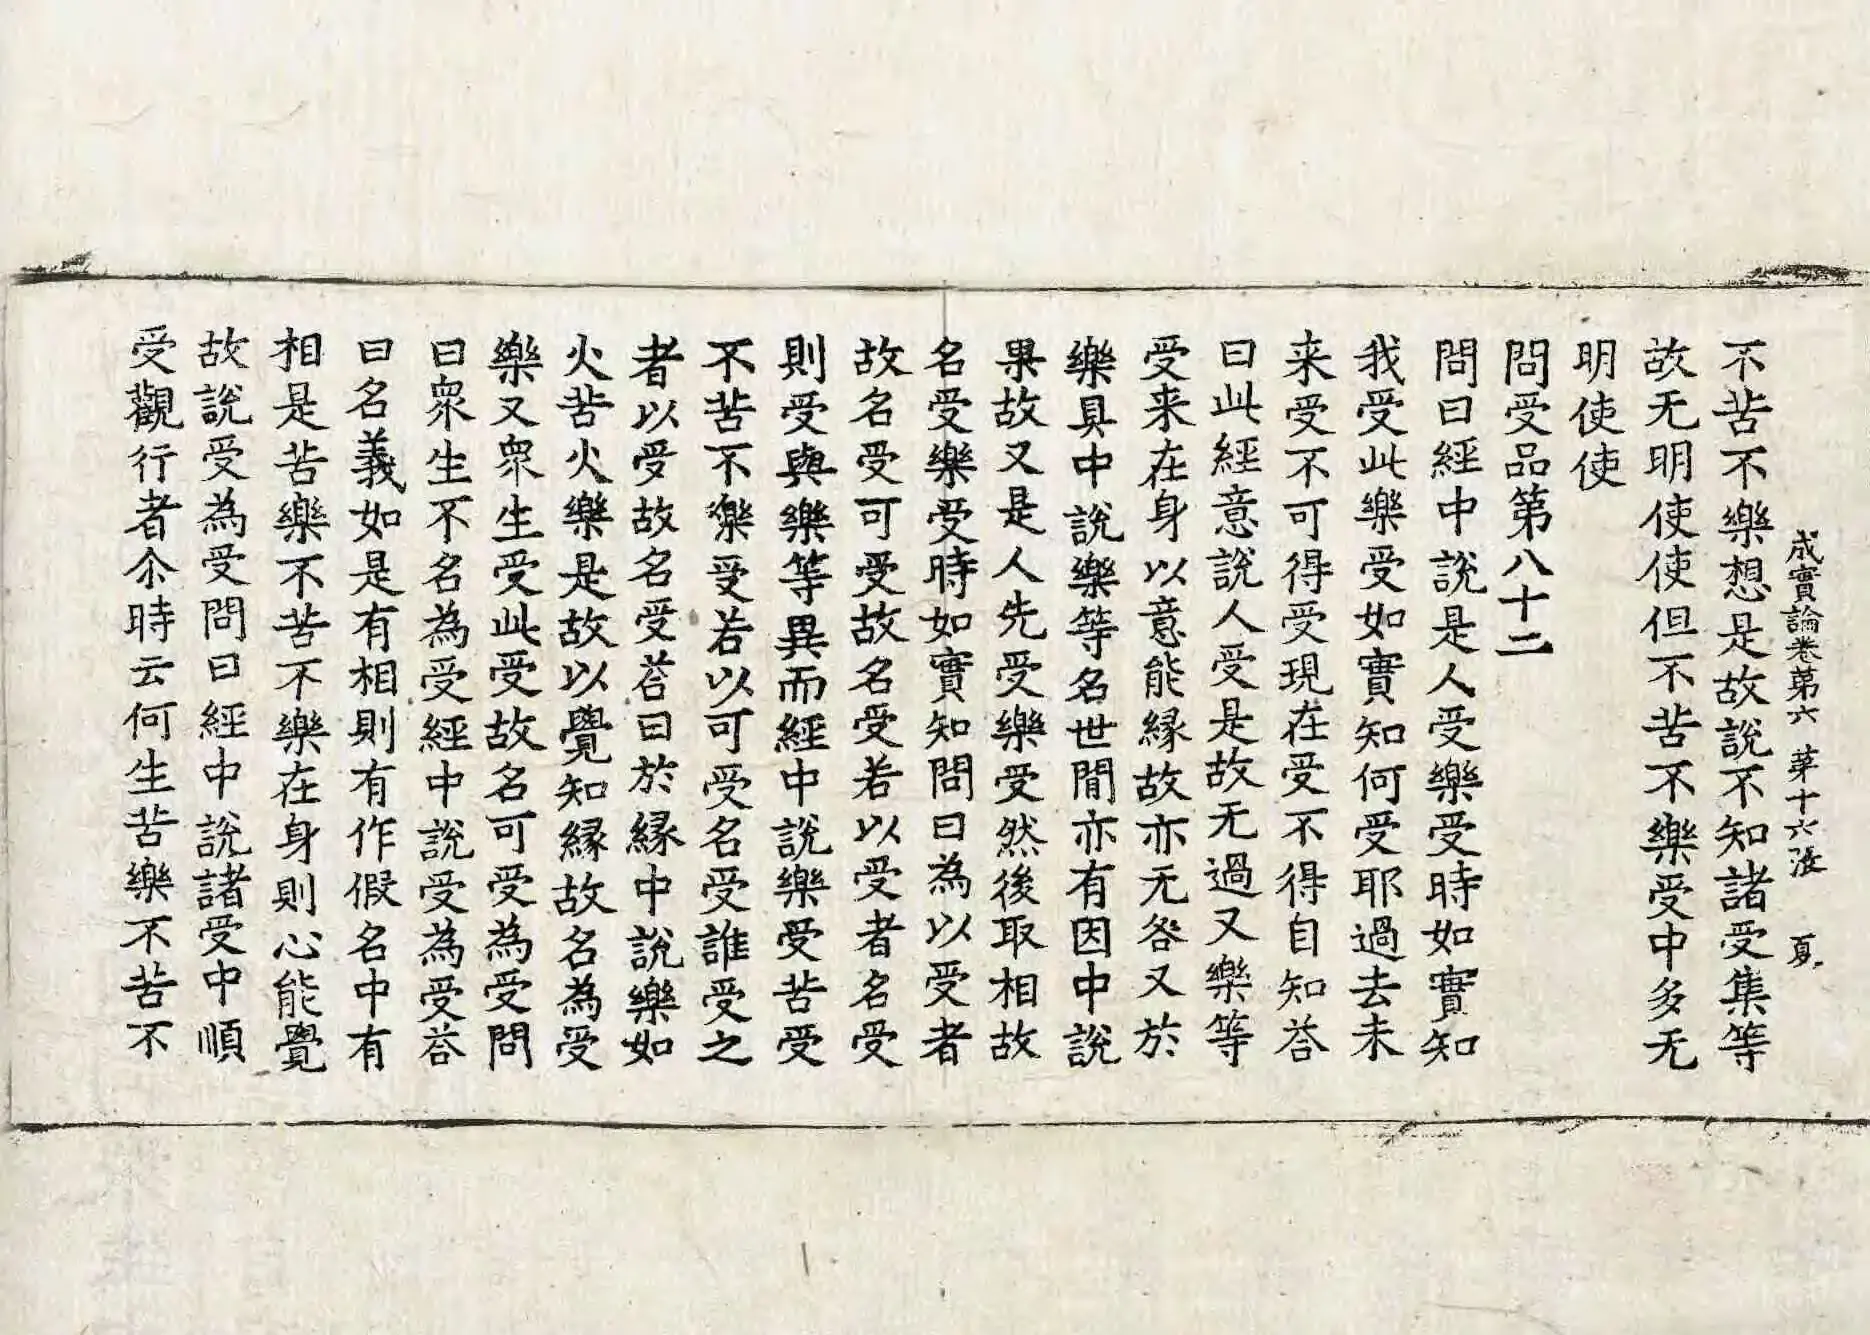 成實論卷第六 苐十六張 夏
不苦不樂想是故說不知諸受集等
故无明使使但不苦不樂受中多无
明使使
問受品第八十二
問曰經中說是人受樂受時如實知
我受此樂受如實知何受耶過去未
来受不可得受現在受不得自知荅
曰此經意說人受是故无過又樂等
受来在身以意能緣故亦无咎又於
樂具中說樂等名世間亦有因中說
果故又是人先受樂受然後取相故
名受樂受時如實知問曰為以受者
故名受可受故名受若以受者名受
則受與樂等異而經中說樂受苦受
不苦不樂受若以可受名受誰受之
者以受故名受荅曰於緣中說樂如
火苦火樂是故以覺知緣故名為受
樂又衆生受此受故名可受為受問
曰衆生不名為受經中說受為受荅
曰名義如是有相則有作假名中有
相是苦樂不苦不樂在身則心能覺
故說受為受問曰經中說諸受中順
受觀行者尒時云何生苦樂不苦不